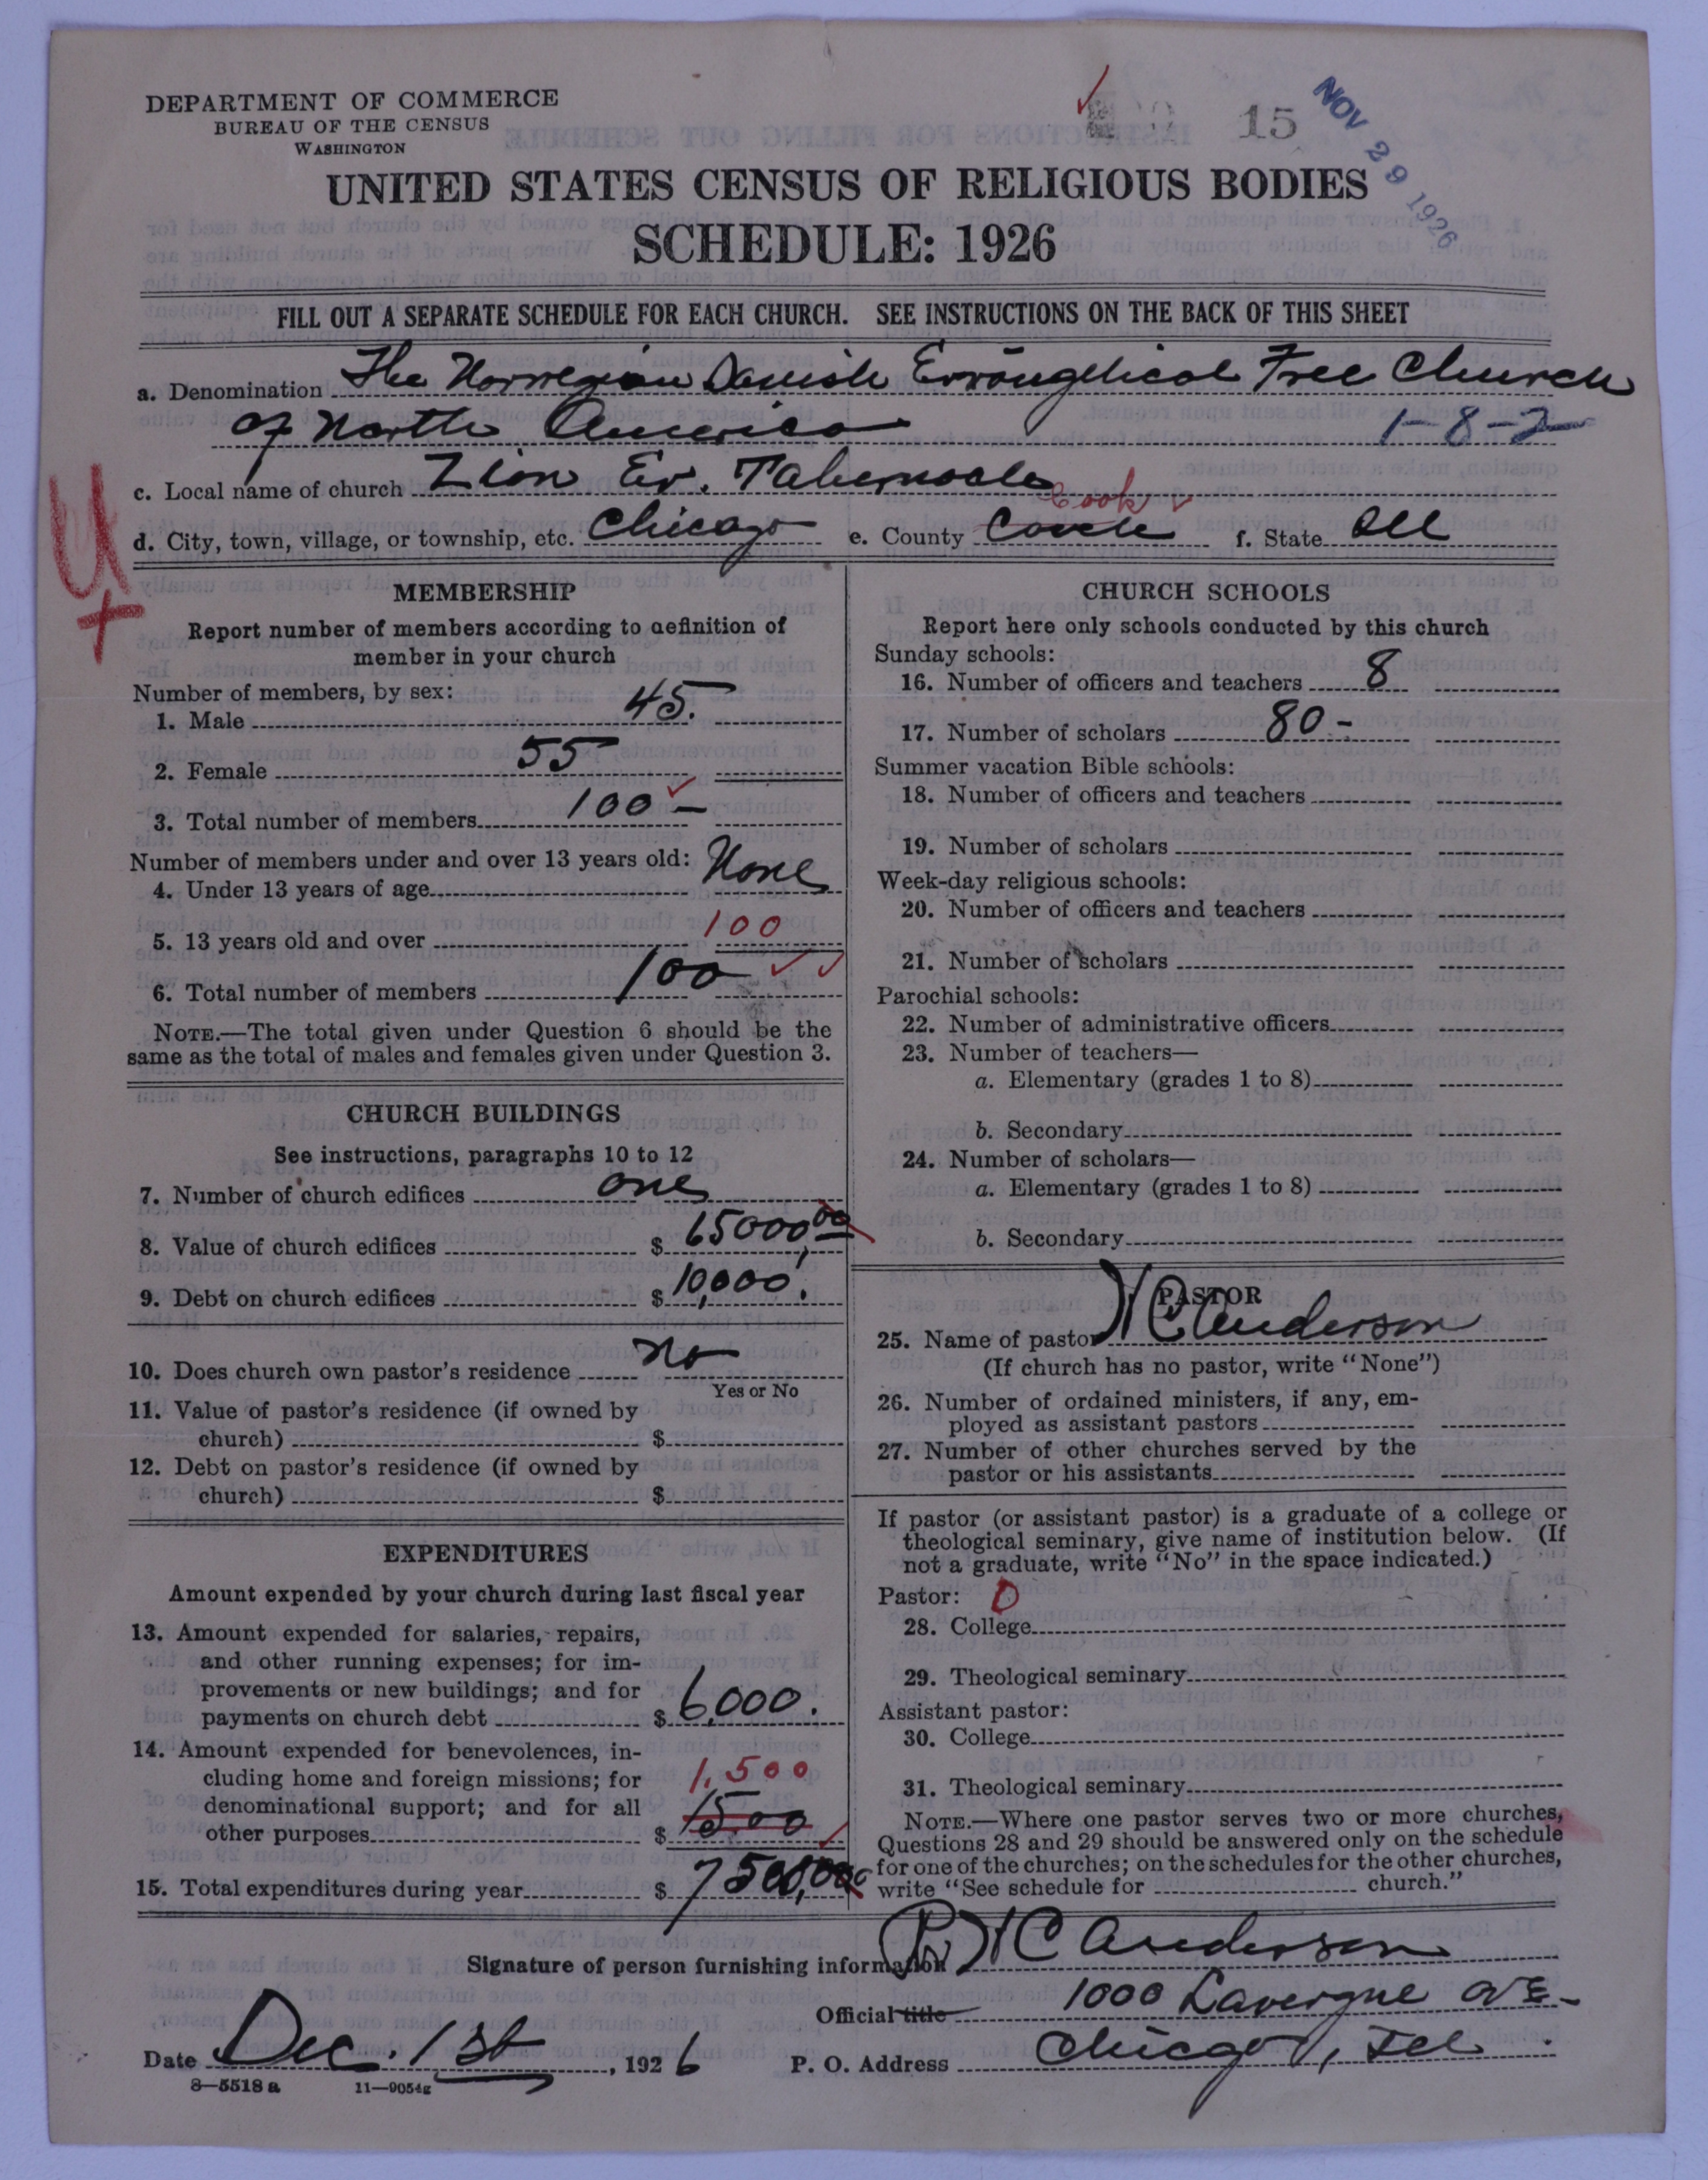 DEPARTMENT OF COMMERCE
BUREAU OF THE CENSUS
WASHINGTON
15
NOV 29 1926
UNITED STATES CENSUS OF RELIGIOUS BODIES
SCHEDULE: 1926
FILL OUT A SEPARATE SCHEDULE FOR EACH CHURCH. SEE INSTRUCTIONS ON THE BACK OF THIS SHEET
a. Denomination The Norwegian Danish Evangelical Free Church
of North America 1-8-2
c. Local name of church Zion Ev. Tabernacle
Cook
d. City, town, village, or township, etc. Chicago e. County f. State Ill
MEMBERSHIP
Report number of members according to definition of
member in your church
Number of members, by sex:
1. Male 45.
2. Female 55
3. Total number of members 100 –
Number of members under and over 13 years old:
4. Under 13 years of age None
5. 13 years old and over 100
6. Total number of members 100
NOTE.—The total given under Question 6 should be the
same as the total of males and females given under Question 3.
CHURCH BUILDINGS
See instructions, paragraphs 10 to 12
7. Number of church edifices one
8. Value of church edifices $ 65000,00
9. Debt on church edifices $ 10,000.
10. Does church own pastor's residence no
Yes or No
11. Value of pastor's residence (if owned by
church) $
12. Debt on pastor's residence (if owned by
church) $
EXPENDITURES
Amount expended by your church during last fiscal year
13. Amount expended for salaries, repairs,
and other running expenses; for im-
provements or new buildings; and for
payments on church debt $ 6,000.
14. Amount expended for benevolences, in-
cluding home and foreign missions; for 1,500
denominational support; and for all
other purposes $ 1500
15. Total expenditures during year $ 7500,00
CHURCH SCHOOLS
Report here only schools conducted by this church
Sunday schools:
16. Number of officers and teachers 8
17. Number of scholars 80 -
Summer vacation Bible schools:
18. Number of officers and teachers
19. Number of scholars
Week-day religious schools:
20. Number of officers and teachers
21. Number of scholars
Parochial schools:
22. Number of administrative officers
23. Number of teachers—
a. Elementary (grades 1 to 8)
b. Secondary
24. Number of scholars—
a. Elementary (grades 1 to 8)
b. Secondary
PASTOR
25. Name of pastor H C Anderson
(If church has no pastor, write "None")
26. Number of ordained ministers, if any, em-
ployed as assistant pastors
27. Number of other churches served by the
pastor or his assistants
If pastor (or assistant pastor) is a graduate of a college or
theological seminary, give name of institution below. (If
not a graduate, write "No" in the space indicated.)
Pastor: 0
28. College
29. Theological seminary
Assistant pastor:
30. College
31. Theological seminary
NOTE.—Where one pastor serves two or more churches,
Questions 28 and 29 should be answered only on the schedule
for one of the churches; on the schedules for the other churches,
write "See schedule for church."
Signature of person furnishing information H C Anderson
Official title 1000 Lavergne ave-
Date Dec. 1st, 1926 P. O. Address Chicago, Ill.
8—5518 a 11—9054g